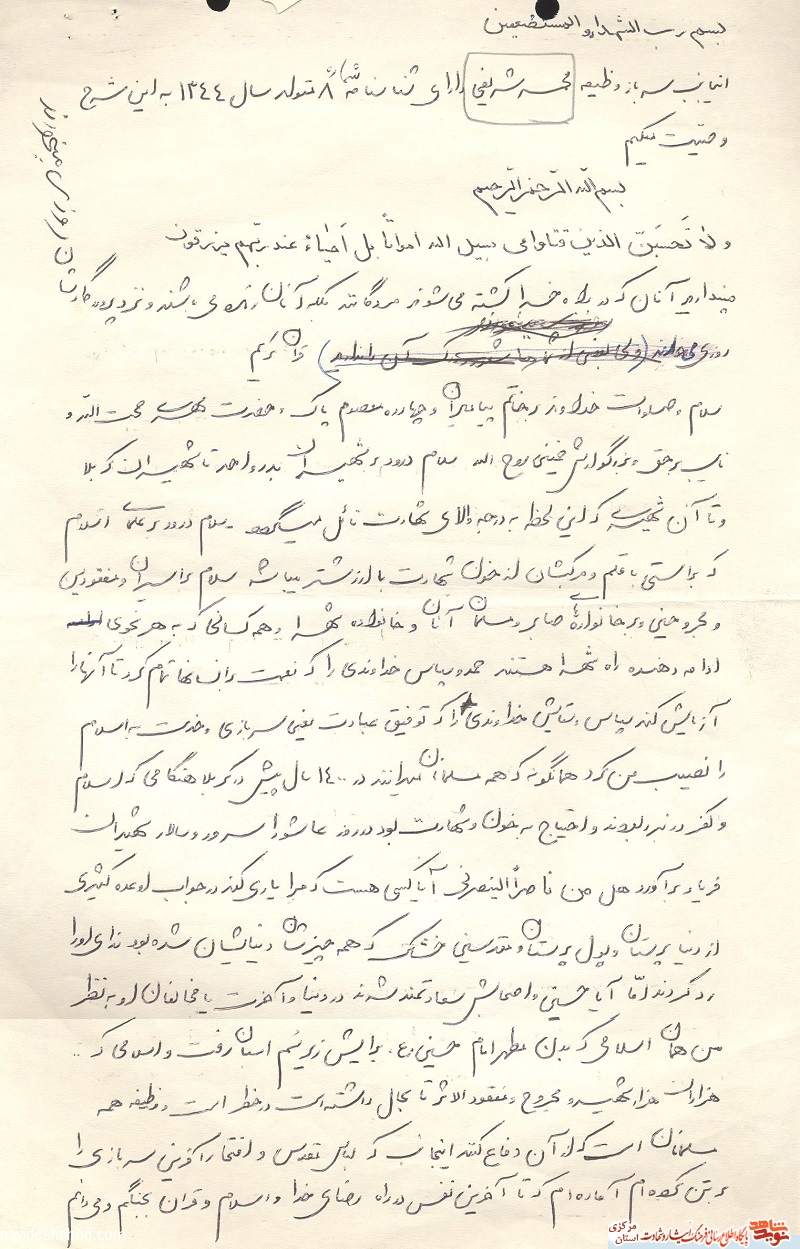 بسم رب الشهدا و المستضعفین
اینجانب سرباز وظیفه محمد شریفی دارای شناسنامه شماره ۸ متولد سال ۱۳۴۴ به این شرح
وصیت میکنم
بسم الله الرحمن الرحیم
ولا تَحسَبَنّ الذین قتلوا فی سبیل الله امواتاً بل اَحیاءٌ عند ربّهم یرزقون
مپندارید آنان که در راه خدا کشته می‌شوند مردگانند بلکه آنان زنده می باشند و نزد پروردگارشان روزی میخورند
قرآن کریم
سلام و صلوات خداوند بر خاتم پیامبران و چهارده معصوم پاک و حضرت مهدی حجت الله و
نایب برحق و بزرگوارش خمینی روح الله سلام و درود بر شهیدان بدر و احد تا شهیدان کربلا
و تا آن شهیدی که این لحظه به درجه والای شهادت نائل میگردد سلام و درود بر علمای اسلام
که براستی با قلم و مرکبشان از خون شهادت با ارزشتر میباشد سلام بر اسیران و مفقودین
و مجروحین و بر خانواده‌ی صابر و مسلمان آنان و خانواده شهدا و همه کسانی که به هر نحوی
ادامه دهنده راه شهدا هستند حمد و سپاس خداوندی را که نعمت بر انسانها تمام کرد تا آنها را
آزمایش کند سپاس و ستایش خداوندی را که توفیق عبادت یعنی سربازی و خدمت به اسلام
را نصیب من کرد همانگونه که همه مسلمانان میدانند در ۱۴۰۰ سال پیش در کربلا هنگامی که اسلام
و کفر در نبرد بودند و احتیاج به خون و شهادت بود در روز عاشورا سرور و سالار شهیدان
فریاد برآورد هل من ناصراً ینصرنی آیا کسی هست که مرا یاری کند در جواب او عده کثیری
از دنیا پرستان و پول پرستان و مقدسینی خشک که همه چیزشان دنیایشان شده بود ندای او را
رد کردند امّا آیا حسین و اصحابش سعادتمند شدند در دنیا و آخرت یا مخالفان او به نظر
من همان اسلامی که بدن مطهر امام حسین (ع) برایش زیر سُم اسبان رفت و اسلامی که ..
هزاران هزار شهید و مجروح و مفقود الاثر تا بحال داشته است در خطر است و وظیفه همه
مسلمانان است که از آن دفاع کنند اینجانب که لباس مقدس و افتخار آفرین سربازی را
بر تن کرده‌ام آماده‌ام که تا آخرین نفس در راه رضای خدا و اسلام و قرآن بجنگم و می‌دانم
نوید شاهد
پایگاه اطلاع رسانی فرهنگ ایثار و شهادت
استان مرکزی
navideshahed.com